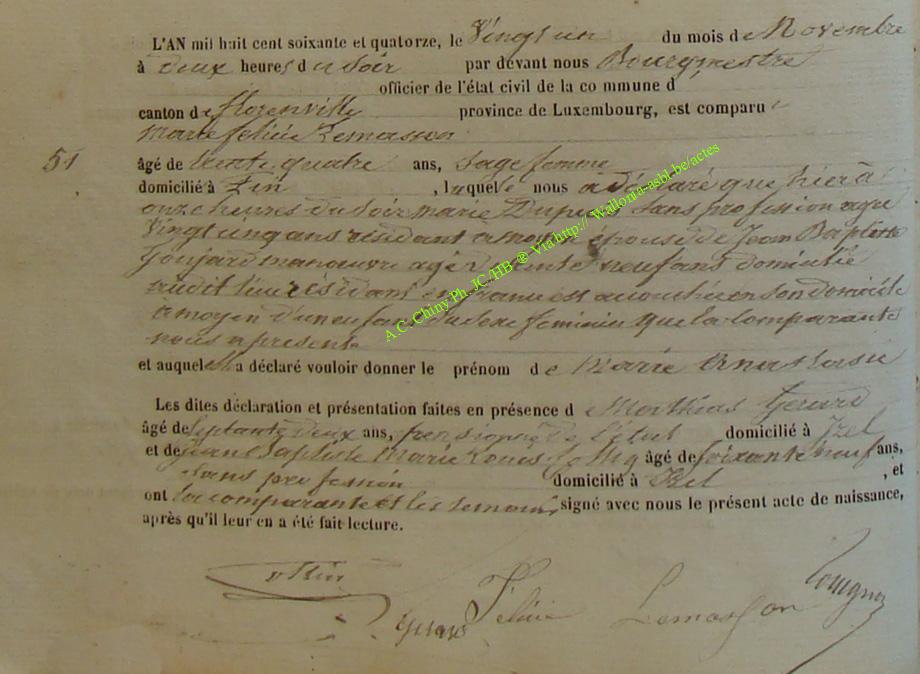 L'AN mil huit cent soixante et quatorze, le Vingt un du mois de Novembre
à deux heures du soir par devant nous Bourgmestre
officier de l'état civil de la commune d
canton de florenville province de Luxembourg, est comparu
marie felicie Lemasson
51 âgé de trente quatre ans, Sage femme
domicilié à Izin , laquelle nous a déclaré que hier à
onze heures du soir marie sans profession agée
Vingt cinq ans résidant a moyen épouse de Jean Baptiste
manœuvre agé trente neuf ans domicilié
audit lieu résidant en est accouchée en son domicile
a moyen d'un enfant du sexe feminin que la Comparante
nous a presenté
et auquel elle a déclaré vouloir donner le prénom de Marie Anastasie
Les dites déclaration et présentation faites en présence de Mathias
âgé de septante deux ans, pensionné de l'état domicilié à Izel
et de Jean Baptiste Marie Louis âgé de soixante neuf ans,
sans profession domicilié à Izel , et
ont la comparante et les temoins signé avec nous le présent acte de naissance,
après qu'il leur en a été fait lecture.
Félicie Lemasson
A.C. Chiny Ph. JC/HB ® Via http://Wallonia-asbl.be/actes